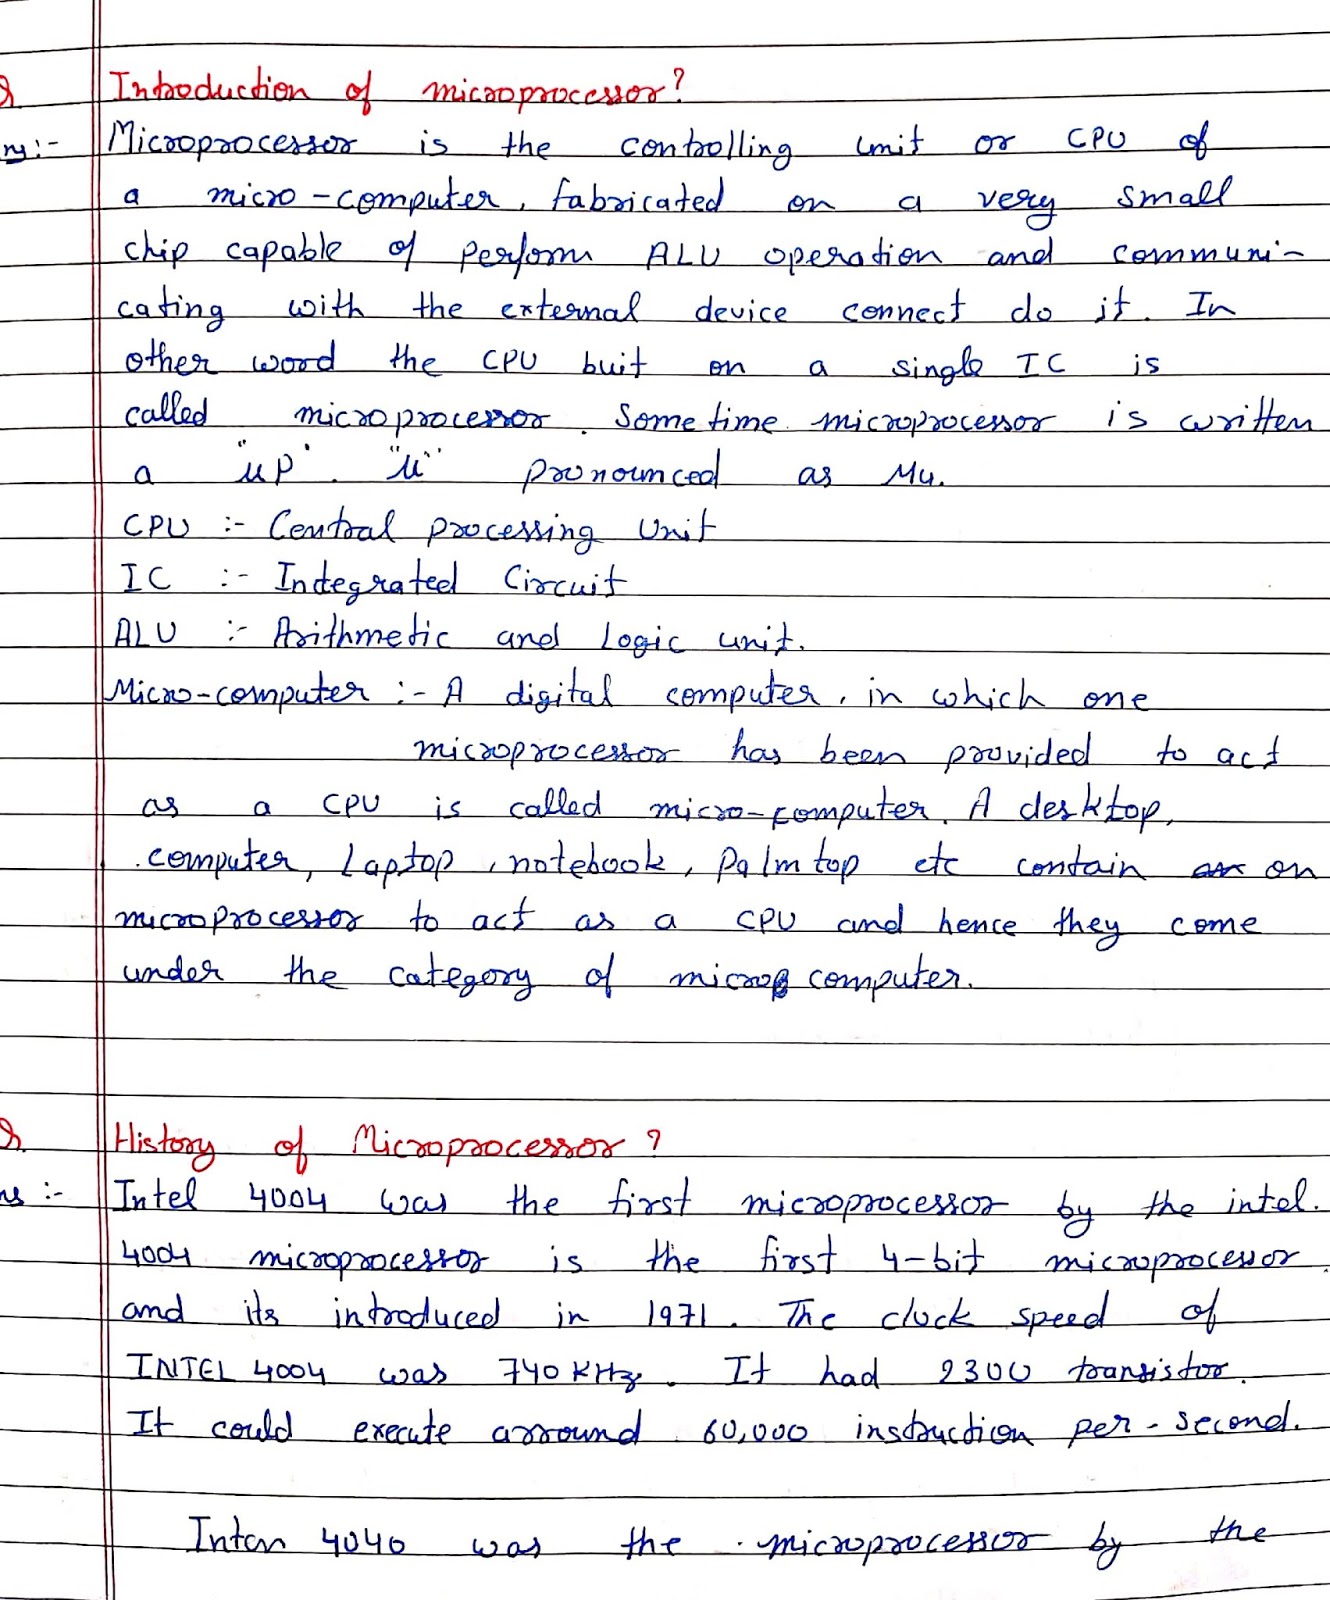 Q Introduction of microprocessor?
ns:- Microprocessor is the controlling unit or CPU of
a micro-computer, fabricated on a very small
chip capable of perform ALU operation and communi-
cating with the external device connect do it. In
other word the CPU buit on a single IC is
called microprocessor. Some time microprocessor is written
a "up". "u" pronounced as Mu.
CPU :- Central processing Unit
IC :- Integrated Circuit
ALU :- Arithmetic and Logic unit.
Micro-computer :- A digital computer, in which one
microprocessor has been provided to act
as a CPU is called micro-computer. A desktop,
computer, Laptop, notebook, Palm top etc contain on
microprocessor to act as a CPU and hence they come
under the category of micro computer.
Q. History of Microprocessor?
ns :- Intel 4004 was the first microprocessor by the intel.
4004 microprocessor is the first 4-bit microprocessor
and its introduced in 1971. The clock speed of
INTEL 4004 was 740 KHz. It had 2300 transistor.
It could execute arround 60,000 instruction per-second.
Inten 4040 was the microprocessor by the